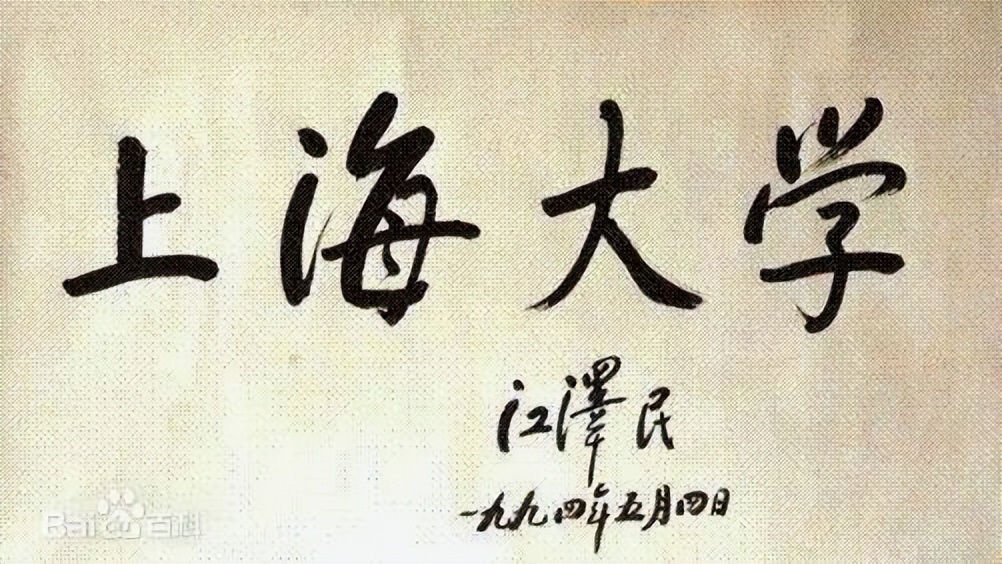 上海大学
江澤民
一九九四年五月四日
Baidu百科